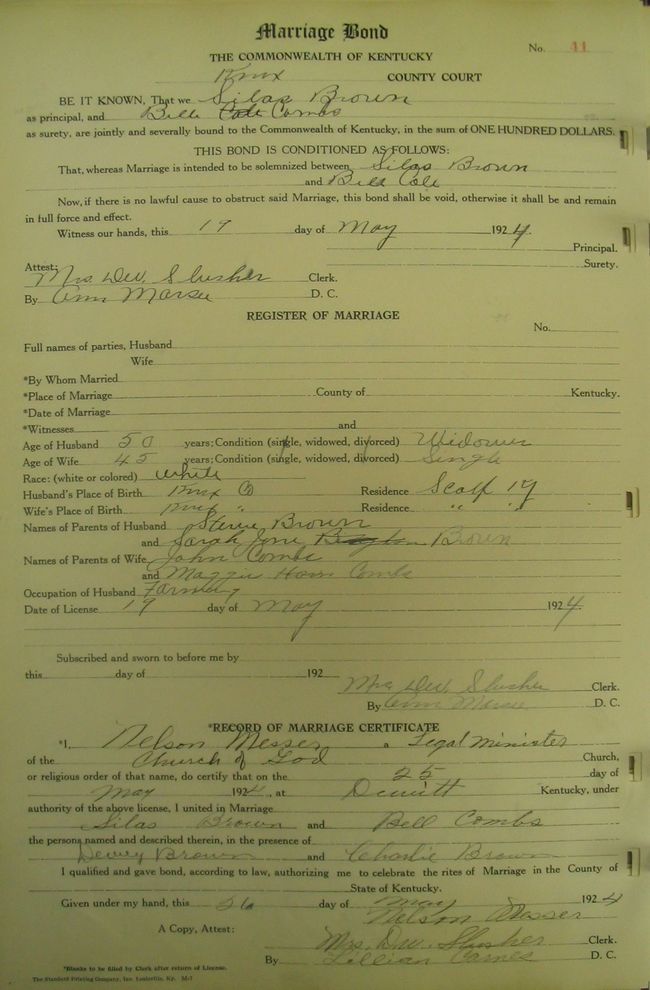 Marriage Bond
No. 41
THE COMMONWEALTH OF KENTUCKY
Knox COUNTY COURT
BE IT KNOWN, That we Silas Brown
as principal, and Bell Cole Combs
as surety, are jointly and severally bound to the Commonwealth of Kentucky, in the sum of ONE HUNDRED DOLLARS.
THIS BOND IS CONDITIONED AS FOLLOWS:
That, whereas Marriage is intended to be solemnized between Silas Brown
and Bell Cole
Now, if there is no lawful cause to obstruct said Marriage, this bond shall be void, otherwise it shall be and remain
in full force and effect.
Witness our hands, this 19 day of May 1924.
Principal.
Attest: Surety.
Mrs. D.W. Slusher Clerk.
By Ann D. C.
REGISTER OF MARRIAGE
No.
Full names of parties, Husband
Wife
*By Whom Married
*Place of Marriage County of Kentucky.
*Date of Marriage
*Witnesses and
Age of Husband 50 years; Condition (single, widowed, divorced) Widower
Age of Wife 45 years; Condition (single, widowed, divorced) Single
Race: (white or colored) white
Husband's Place of Birth Knox Co Residence Scalf Ky
Wife's Place of Birth Knox " Residence " "
Names of Parents of Husband Steve Brown
and Sarah Jane Brown
Names of Parents of Wife John Combs
and Maggie Combs
Occupation of Husband Farming
Date of License 19 day of May 1924.
Subscribed and sworn to before me by
this day of 192
Mrs. D.W. Slusher Clerk.
By Ann D. C.
*RECORD OF MARRIAGE CERTIFICATE
*I, Nelson Messer a Legal Minister
of the Church of God Church,
or religious order of that name, do certify that on the 25 day of
May 1924, at Dewitt Kentucky, under
authority of the above license, I united in Marriage
Silas Brown and Bell Combs
the persons named and described therein, in the presence of
Dewey Brown and Charlie Brown
I qualified and gave bond, according to law, authorizing me to celebrate the rites of Marriage in the County of
State of Kentucky.
Given under my hand, this 26 day of May 1924
Nelson Messer
A Copy, Attest:
Mrs. D.W. Slusher Clerk.
By Lillian Carnes D. C.
*Blanks to be filled by Clerk after return of License.
The Standard Printing Company, Inc. Louisville, Ky. M-7